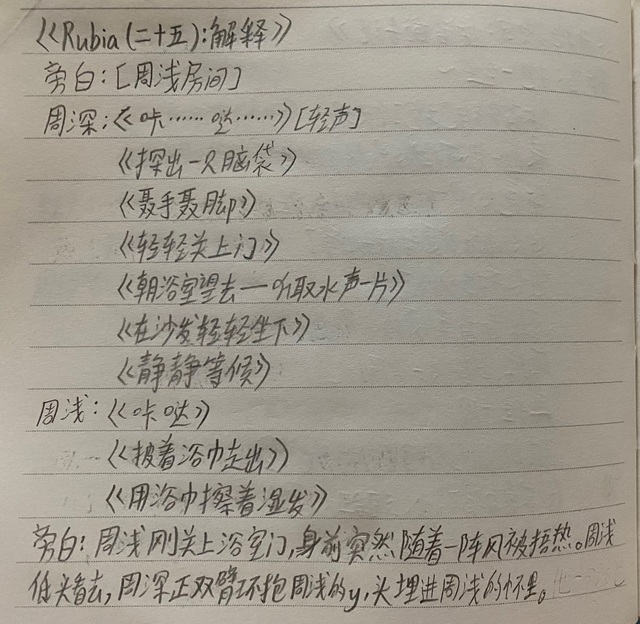 《Rubia(二十五):解释》
旁白:[周浅房间]
周深:《咔……哒……》[轻声]
《探出一只脑袋》
《蹑手蹑脚》
《轻轻关上门》
《朝浴室望去一听取水声一片》
《在沙发轻轻坐下》
《静静等候》
周浅:《咔哒》
《披着浴巾走出》
《用浴巾擦着湿发》
旁白:周浅刚关上浴室门,身前突然随着一阵风被捂热。周浅
低头看去,周深正双臂环抱周浅的y,头埋进周浅的怀里。